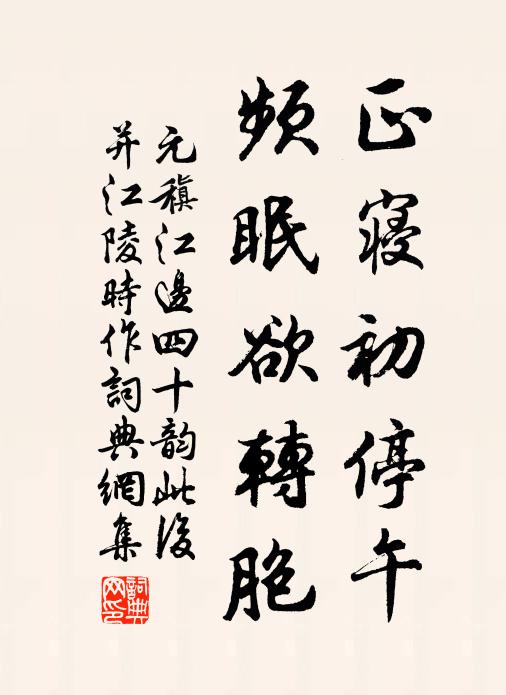 正寢初停午
頻眠欲轉胞
元稹江邊四十韵此後
并江陵時作詞典網集
詞典網印